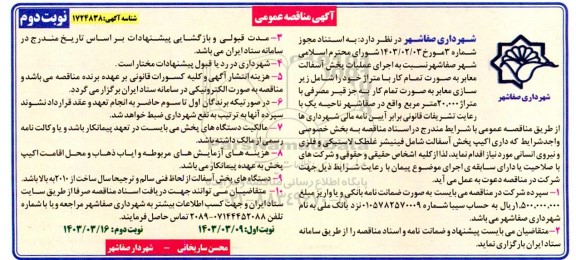 آگهی مناقصه عمومی
شناسه آگهی: ۱۷۲۴۸۳۸
نوبت دوم
شهرداری صفاشهر
شهرداری صفاشهر در نظر دارد: به استناد مجوز
شماره ۳ مورخ ۱۴۰۳/۰۲/۰۳ شورای محترم اسلامی
شهر صفاشهر نسبت به اجرای عملیات پخش آسفالت
معابر به صورت تمام کار با متراژ خودرا شامل زیر
سازی معابر به صورت تمام کار با جز قیر مصرفی با
متراژ ۲۰،۰۰۰ متر مربع واقع در صفاشهر ناحیه یک با
رعایت تشریفات قانونی برابر آیین نامه مالی شهرداری ها
از طریق مناقصه عمومی با شرایط مندرج در اسناد مناقصه به بخش خصوصی
واجد شرایط که دارای اکیپ پخش آسفالت شامل فینیشر غلطک لاستیکی و فلزی
و نیروی انسانی مورد نیاز اقدام نماید. لذا از کلیه اشخاص حقیقی و حقوقی و شرکت های
با صلاحیت با دارای سابقه ی اجرای موضوع پیمان با رعایت شرایط ذیل جهت
شرکت در مناقصه دعوت به عمل می آید.
۱- سپرده شرکت در مناقصه می بایست به صورت ضمانت نامه بانکی و یا واریز مبلغ
ریال به حساب سیبا شماره ۰۱۰۵۷۸۲۵۷۰۰۰۹ نزد بانک ملی به نام
شهرداری صفاشهر می باشد.
۲- متقاضیان می بایست پیشنهاد و ضمانت نامه و اسناد مناقصه را از طریق سامانه
ستاد ایران بارگزاری نماید.
۳- مدت قبولی و بازگشایی پیشنهادات بر اساس تاریخ مندرج در
سامانه ستاد ایران می باشد.
۴- شهرداری در رد یا قبول پیشنهادات مختار است.
۵- هزینه انتشار آگهی و کلیه کسورات قانونی بر عهده برنده مناقصه می باشد و
مناقصه به صورت الکترونیکی در سامانه ستاد ایران برگزار می گردد.
۶- در صورتیکه برندگان اول تا سوم حاضر به انجام تعهد و عقد قرارداد نشوند
سپرده آنها به ترتیب به نفع شهرداری ضبط خواهد شد.
۷- مالکیت دستگاه های پخش می بایست در تعهد پیمانکار باشد و یا وکالت نامه
رسمی از مالک داشته باشد.
۸- هزینه های آزمایش های مربوطه و ایاب ذهاب و محل اقامت اکیپ
پخش به عهده پیمانکار می باشد.
۹- دستگاه های پخش آسفالت از لحاظ فنی سالم و ترجیحا سال ساخت از ۲۰۱۰ به بالا باشد.
۱۰- متقاضیان می توانند جهت دریافت اسناد مناقصه صرفا از طریق سایت
ستاد ایران و جهت کسب اطلاعات بیشتر به شهرداری صفاشهر مراجعه و یا با شماره
تلفن ۰۷۱۴۴۴۵۲۰۸۸-۲۰۸۹ تماس حاصل فرمایند.
نوبت اول: ۱۴۰۳/۰۳/۰۹ نوبت دوم: ۱۴۰۳/۰۳/۱۶
محسن ساریخانی - شهردار صفاشهر